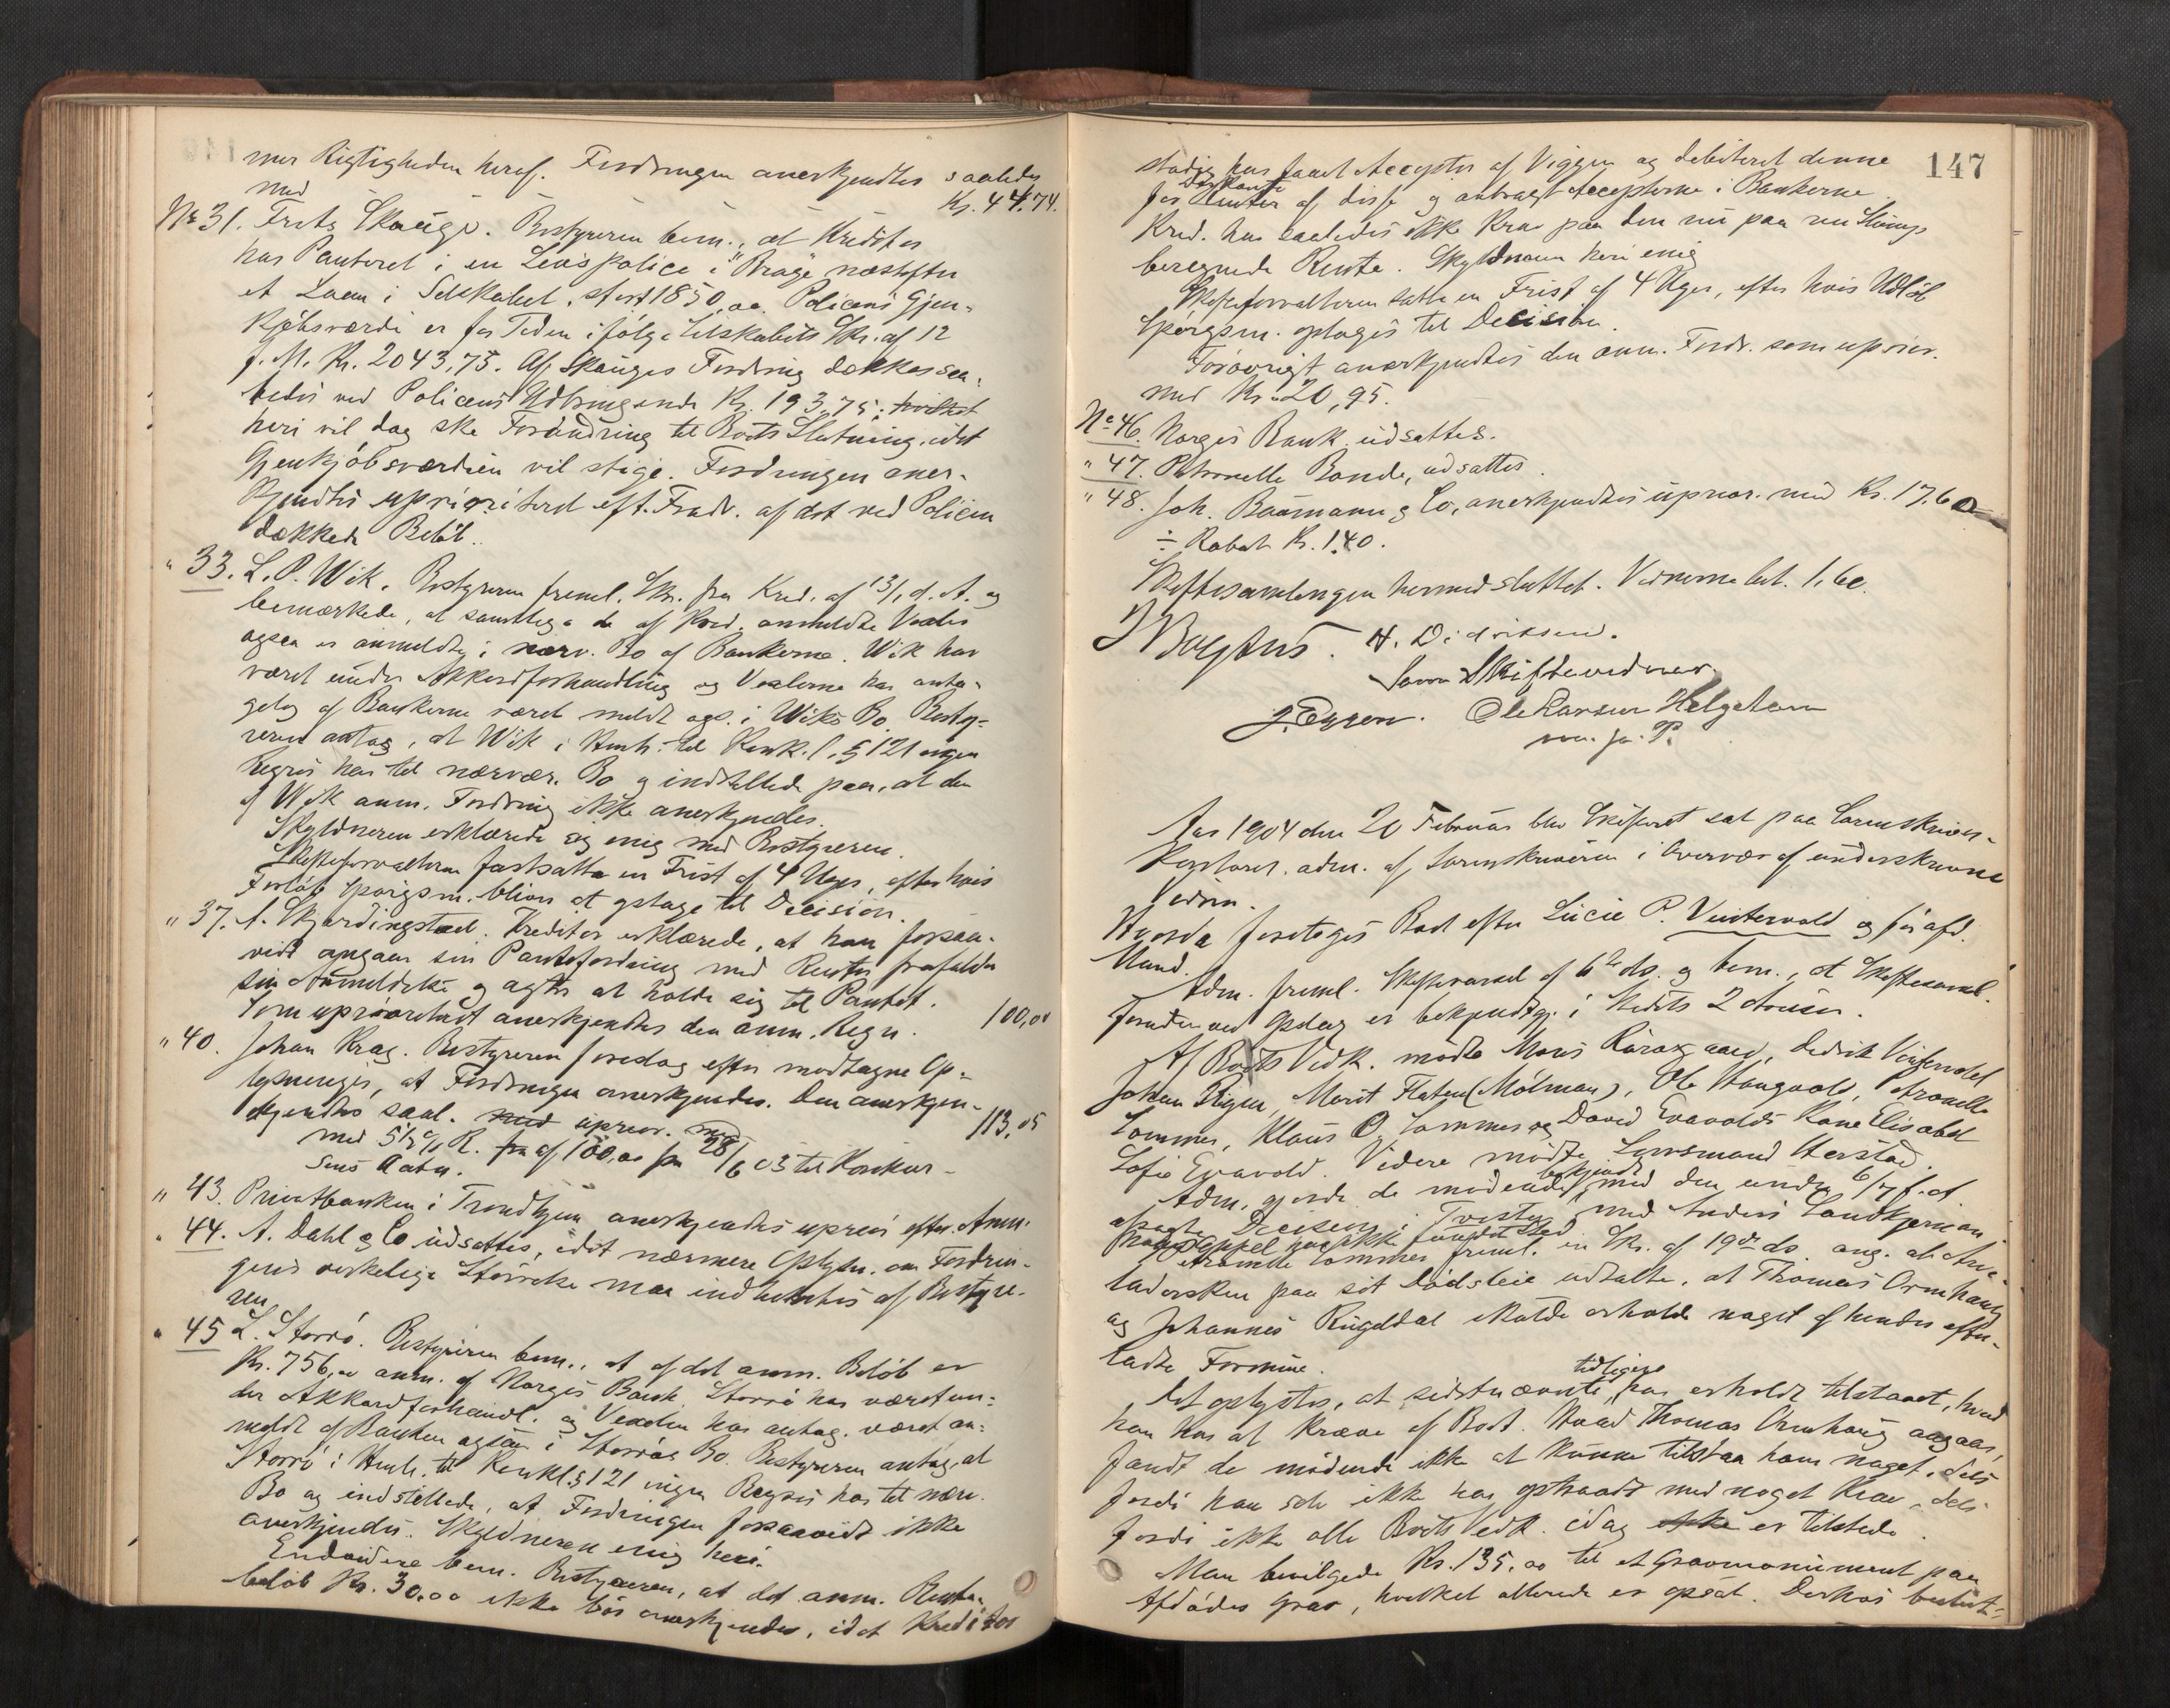 mer Rigtigheden heraf. Fordringen anerkjendtes saaledes
med Kr. 44.74.
No 31. Frits Skauge. Bestyreren bem., at Kreditor
har Panteret i en Livspolice i "Brage" næstefter
et Laan i Selskabet, stort 1850,00. Policens Gjen-
kjøbsværdi er for Tiden ifølge Selskabets Skr. af 12
f. M. Kr. 2043,75. Af Skauges Fordring dækkes saa-
ledes ved Policens Udbringende Kr. 193,75; hvilket
heri vil dog ske Forandring til Boets Slutning, idet
Gjenkjøbsværdien vil stige. Fordringen aner-
kjendtes uprioriteret eft. Fradr. af det ved Policen
dækkede Beløb.
" 33. L. P. Wik. Bestyreren freml. Skr. fra Kred. af 13/1 d. A. og
bemærkede, at samtlige de af Kred. anmeldte Vexler
ogsaa er anmeldt i nærv. Bo af Bankerne. Wik har
været under Akkordforhandling og Vexlerne har anta-
gelig af Bankerne været meldt ogs. i Wiks Bo. Besty-
reren antog, at Wik i Henh. til Konk. l. § 121 ingen
Regres har til nærvær. Bo og indstillede paa, at den
af Wik anm. Fordring ikke anerkjendes.
Skyldneren erklærede sig enig med Bestyreren.
Skifteforvalteren fastsatte en Frist af 4 Uger, efter hvis
Forløb Spørgsm. bliver at optage til Decision.
" 37. A. Skjerdingstad. Kreditor erklærede, at han forsaa-
vidt angaar sin Pantefordring med Renter frafalder
sin Anmeldelse og agter at holde sig til Pantet.
Som uprioriteret anerkjendtes den anm. Regn. 100,00
" 40. Johan Krag. Bestyreren foreslog efter modtagne Op-
lysninger, at Fordringen anerkjendes. Den anerkjen-
kjendtes saal. med uprior. med 113,05
med 5½ % R. fra af 100,00 fra 28/6 03 til Konkur-
sens Aabn.
" 43. Privatbanken i Trondhjem anerkjendtes uprior. efter Anm.
" 44. A. Dahl & Co udsattes, idet nærmere Oplysn. om Fordrin-
gens virkelige Størrelse maa indhentes af Bestyre-
ren
" 45 L. Storrø. Bestyreren bem., at af det anm. Beløb er
Kr. 756,00 anm. af Norges Bank. Storrø har været un-
der Akkordforhandl. og Vexelen har antag. været an-
meldt af Banken ogsaa i Storrøs Bo. Bestyreren antog, at
Storrø i Henh. til Konkl. § 121 ingen Regres har til nærv.
Bo og indstillede, at Fordringen forsaavidt ikke
anerkjendes. Skyldneren enig heri.
Endvidere bem. Bestyreren, at det anm. Rente-
beløb Kr. 30,00 ikke bør anerkjendes, idet Kreditor
147
stadig har faaet Accepter af Viggen og debiteret denne
for Diskonto Renter af disse og anbragt Accepterne i Bankerne.
Kred. har saaledes ikke Krav paa den nu paa en Slump
beregnede Rente. Skyldneren heri enig
Skifteforvalteren satte en Frist af 4 Uger, efter hvis Udløb
Spørgsm. optages til Decision.
Forøvrigt anerkjendtes den anm. Fordr. som uprior.
med Kr. 20,95.
No 46. Norges Bank udsattes.
" 47. Petronelle Bonde, udsattes.
" 48. Joh. Baumann & Co, anerkjendtes uprior. med Kr. 17.60
÷ Rabat Kr. 1.40.
Skiftesamlingen hermed sluttet. Vidnerne bet. 1,60.
H. Didriksen.
som Skiftevidner.
Ole Larsen Helgetun
Aar 1904 den 20 Februar blev Skifteret sat paa Sorenskriver-
kontoret, adm. af Sorenskriveren i Overvær af underskrevne
Vidner.
Hvorda foretoges Boet efter Lucie P. Vintervold og før afd.
Mand.
Adm. freml. Skiftevarsel af 6te ds. og bem., at Skiftesaml.
foruden ved Opslag er bekjendtgj. i Stedets 2 Aviser.
Af Boets Vedk. mødte Mons Raraxaaen, Dedrik Vintervold
Johan Rigen, Marit Flaten (Mølmann), Ole Haugvold, Aronelle
Lommer, Klaus O. Lommer og David Evavolds Kone Elisabet
Sofie Evavold. Videre mødte Lensmand Herstad.
Adm. gjorde de mødende bekjendt med den under 6/7 f. A.
afsagte Decision i Tvisten med Anders Landkjernan.
Paaappel har ikke fundet Sted.
Aronelle Lommer freml. en Skr. af 19de ds. ang. at Arve-
ladersken paa sit Dødsleie udtalte, at Thomas Ormhaug
og Johannes Ringeldal skulde erholde noget af hendes efter-
ladte Formue.
Det oplystes, at sidstnævnte tidligere har erholdt tilstaaet, hvad
han har at kræve af Boet. Hvad Thomas Ormhaug angaar,
fandt de mødende ikke at kunne tilstaa ham noget, dels
fordi han selv ikke har optraadt med noget Krav, dels
fordi ikke alle Boets Vedk. idag ikke er tilstede.
Man bevilgede Kr. 135,00 til et Gravmonument paa
Afdødes Grav, hvilket allerede er opsat. Derhos beslut-